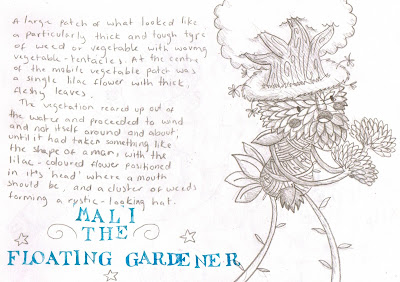 A large patch of what looked like
a particularly thick and tough type
of weed or vegetable with waving
vegetable-tentacles. At the centre
of the mobile vegetable patch was
a single lilac flower with thick,
fleshy leaves.
The vegetation reared up out of
the water and proceeded to wind
and knot itself around and about,
until it had taken something like
the shape of a man, with the
lilac-coloured flower positioned
in it's 'head' where a mouth
should be, and a cluster of weeds
forming a rustic-looking hat.
MALI
THE
FLOATING GARDENER